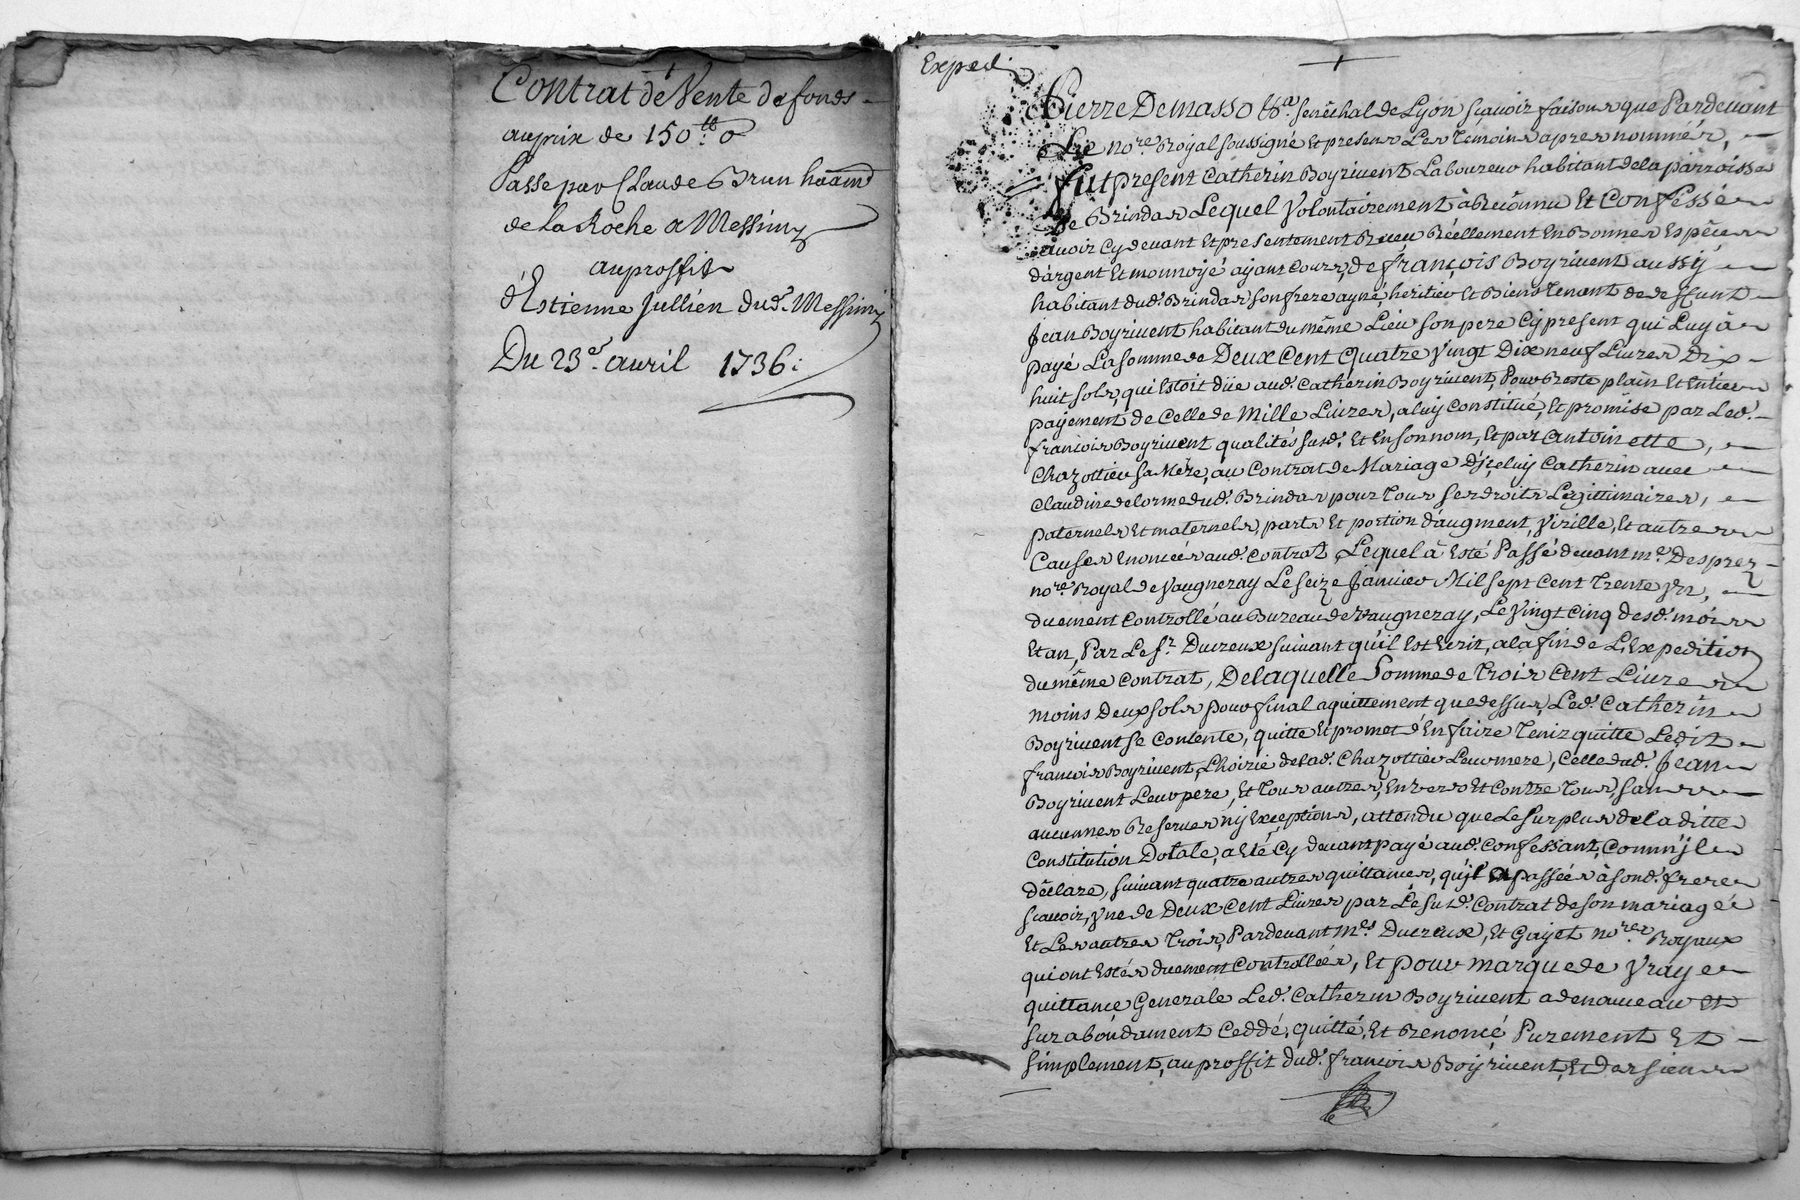 Contrat de Vente de fonds
au prix de 150 tt
Passé par Claude Brun
de La Roche a Messimy
au proffit
d'Estienne Jullien dud. Messimy
Du 23e. avril 1736:
Exped.
Pierre Demasso &a. senéchal de Lyon sçavoir faisons que Pardevant
Le no.re Royal soussigné et presens Les temoins apres nommés,
fut present Catherin Boyrivent Laboureur habitant de la parroisse
de Brindas Lequel Volontairement à Reconnu Et Confessé
avoir cy devant Et presentement Receu Réellement En Bonnes Espèces
d'argent Et monnoyé ayant cours, de françois Boyrivent aussy
habitant dud. Brindas son frere ayné, heritier Et Biens tenant de deffunt
Jean Boyrivent habitant du même Lieu son pere Cy present qui Luy à
payé La somme de Deux Cent Quatre Vingt Dix neuf Livres Dix
huit sols, qui Estoit düe aud. Catherin Boyrivent, Pour Reste plain Et Entier
payement de Celle de Mille Livres, a luy Constitué, Et promise par Led.
francois Boyrivent qualités susd. Et En son nom, Et par Antoinette,
Chazottier sa Mére, au Contrat de Mariage d'yceluy Catherin avec
Claudine delorme dud. Brindas pour tous ses droits Legittimaires,
paternels Et maternels, parts Et portion d'augment, Virille, Et autres
Causes Enoncées aud. Contrat, Lequel à Esté Passé devant m.e Desprez
no.re Royal de Vaugneray Le seize Janvier Mil sept Cent trente Vn,
duement Controllé au Bureau de Vaugneray, Le Vingt Cinq desd. mois
Et an, Par Le S.r Ducreux suivant qu'il Est Ecrit, a la fin de L'Expedition
du même Contrat, De laquelle Somme de trois Cent Livres
moins Deux sols pour final aquittement que dessus, Led. Catherin
Boyrivent se Contente, quitte Et promet d'En faire tenir quitte Ledit
francois Boyrivent, L'hoirie de lad. Chazottier Leur mere, Celle dud. Jean
Boyrivent Leur pere, Et tous autres, Envers Et Contre tous, sans
aucunnes Reserves ny Exceptions, attendu que Le surplus de la ditte
Constitution Dotale, a Eté Cy devant payé aud. Confessant, Comm'jl
déclare, suivant quatre autres quittances, qu'jl a passées à sond. frere
sçavoir, Vne de Deux Cent Livres par Le susd. Contrat de son mariage
Et Les autres trois, Pardevant m.es Ducreux, Et Gayet no.res Royaux
qui ont Estés duement Controllées, Et pour marque de Vraye
quittance Generale Led. Catherin Boyrivent a de nouveau Et
surabondament Ceddé, quitté, Et Renoncé Purement Et
simplement, au proffit dud. francois Boyrivent, Et des siens